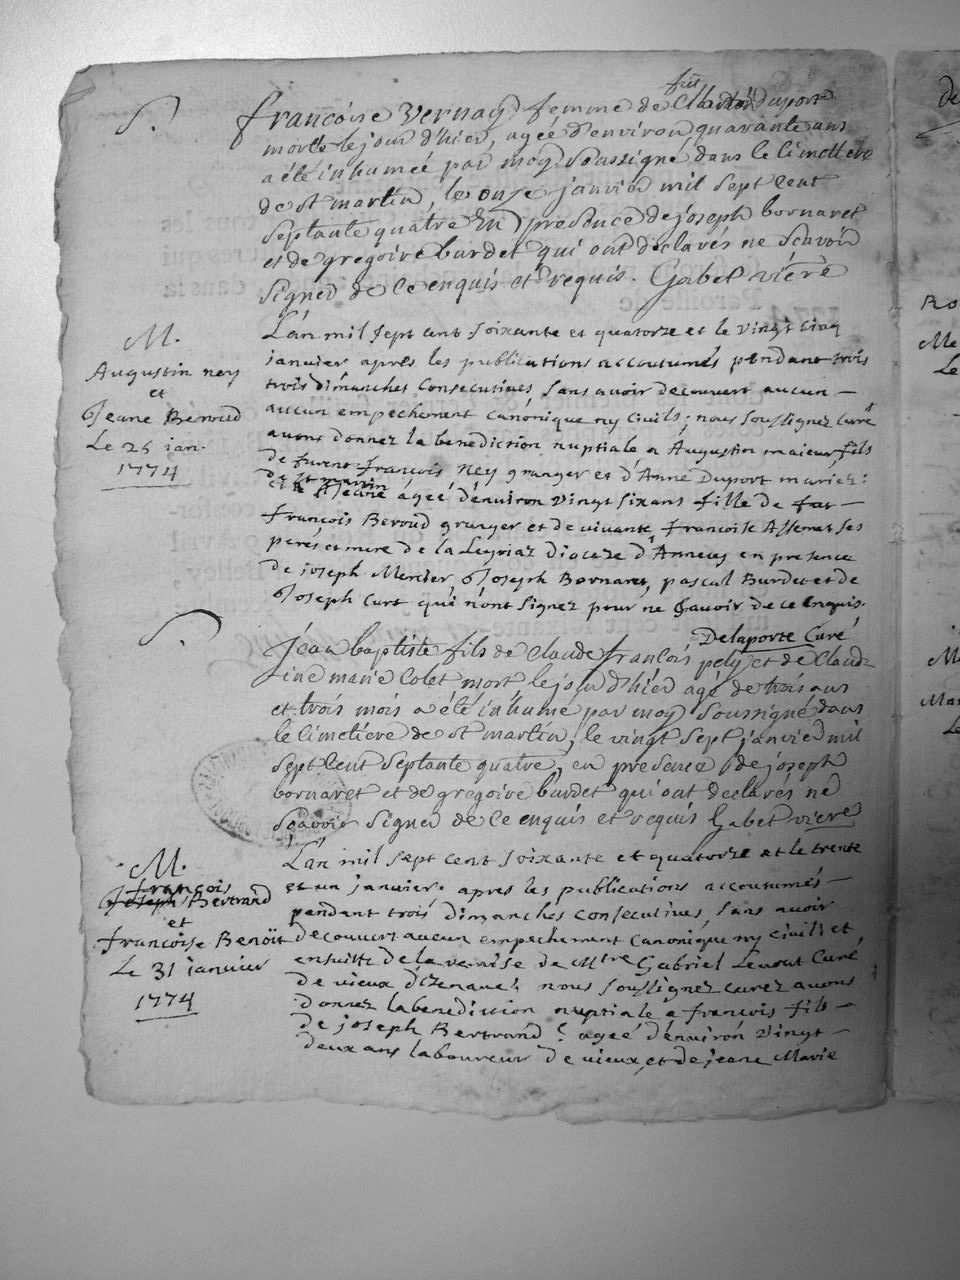 S.
françoise Vernay femme de Claude duport
morte le jour d'hier, agée d'environ quarante ans
a été inhumée par moy soussigné dans le cimettiere
de st martin, le onze janvier mil sept cent
septante quatre En presence de joseph bornaret
et de gregoire burdet qui ont declarés ne scavoir
signer de ce enquis et requis. Gabet vicre
M.
Augustin ney
et
Jeane Beroud
Le 25 jan.
1774
L'an mil sept cent soixante et quatorze et le vingt cinq
janvier après les publications accoutumés pendant trois
trois dimanches consecutives sans avoir decouvert aucun
aucun empechement canonique ny civils; nous soussignez curé
avons donnez la benediction nuptiale a Augustin majeur fils
de furent françois Ney granger et d'Anne Duport mariez
de st martin
et Jeane âgeé d'environ vingt six ans fille de feu
françois Beroud granger et de vivante francoise Assenas ses
peres et mere de la Leyriaz Dioceze d'Annecy en presence
de joseph Mercier, Joseph Bornaret, pascal Burdet et de
Joseph Curt qui n'ont signez pour ne sçavoir de ce enquis.
Delaporte Curé
S.
Jean baptiste fils de claude françois pely et de Claud
ine marie Colet mort le jour d'hier agé de trois ans
et trois mois a été inhumé par moy soussigné dans
le cimetiere de st martin, le vingt sept janvier mil
sept cent septante quatre, en presence de joseph
bornaret et de gregoire burdet qui ont declarés ne
sçavoir signer de ce enquis et requis Gabet vicre
M.
françois
Joseph Bertrand
et
françoise Benoit
Le 31 janvier
1774
L'an mil sept cent soixante et quatorze et le trente
et un janvier après les publications accoutumés
pendant trois dimanches consecutives, sans avoir
decouvert aucun empechement canonique ny civils et
ensuitte de la remise de Mtre Gabriel Curé
de vieux d'izenave, nous soussignez curez avons
donnez la benediction nuptiale a francois fils
de joseph Bertrand ageé d'environ vingt
deux ans laboureur de vieux, et de jeane Marie